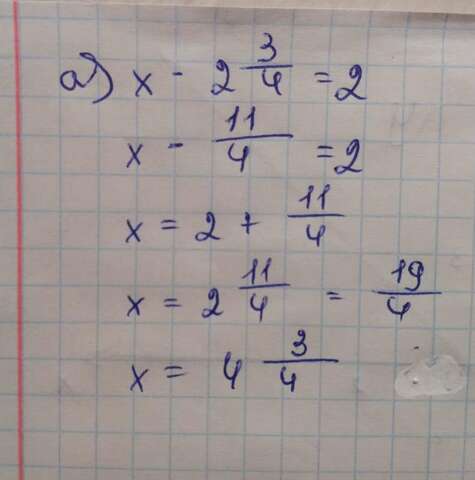 а) x - 2 3/4 = 2
x - 11/4 = 2
x = 2 + 11/4
x = 2 11/4 = 19/4
x = 4 3/4